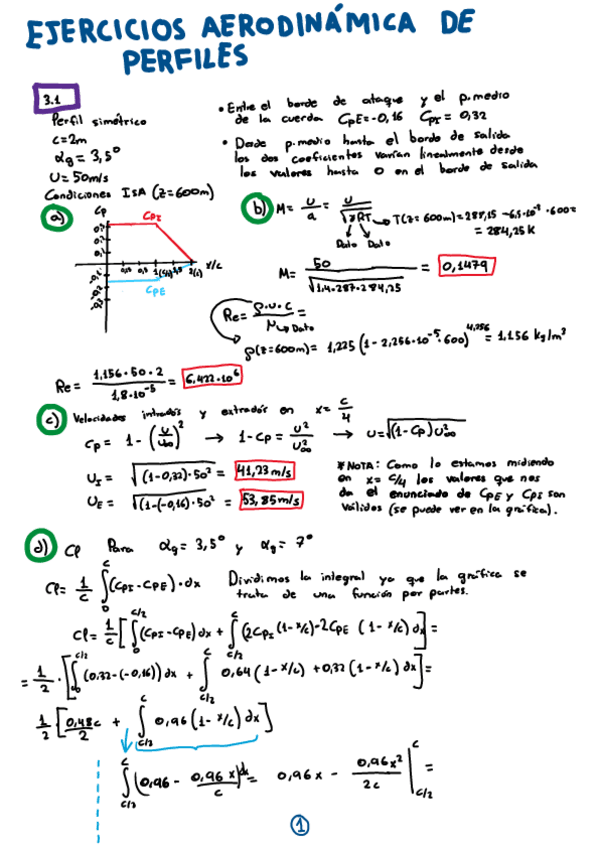 EJERCICIOS AERODINÁMICA DE
PERFILES
3.1
Perfil simétrico
c=2m
αg = 3,5°
U = 50m/s
Condiciones ISA (z=600m)
• Entre el borde de ataque y el p.medio
de la cuerda CpE=-0,16 CpI = 0,32
• Desde p.medio hasta el borde de salida
los dos coeficientes varían linealmente desde
los valores hasta 0 en el borde de salida
a)
Cp
CpI
CpE
x/c
b) M = U/a = U/√γRT → T(z=600m)=288,15 -6,5·10⁻³·600=
= 284,25 K
Dato Dato
M= 50/√1,4·287·284,25 = 0,1479
Re= ρ·U·c/μ → Dato =
ρ(z=600m)= 1,225 (1-2,256·10⁻⁵·600)^4,256 = 1,156 kg/m³
Re= 1,156·50·2/1,8·10⁻⁵ = 6,422·10⁶
c) Velocidades intradós y extradós en x= c/4
Cp = 1 - (U/U∞)² → 1-Cp = U²/U∞² → U=√(1-Cp)U∞²
UI = √(1-0,32)·50² = 41,23 m/s
UE = √(1-(-0,16)·50² = 53,85 m/s
*NOTA: Como lo estamos midiendo
en x= c/4 los valores que nos
da el enunciado de CpE y CpI son
válidos (se puede ver en la gráfica).
d) Cl Para αg = 3,5° y αg = 7°
Cl= 1/c ∫₀^c (CpI - CpE)·dx Dividimos la integral ya que la gráfica se
trata de una función por partes.
Cl= 1/c [∫₀^c/2 (CpI - CpE) dx + ∫c/2^c (2CpI (1-x/c)-2CpE (1-x/c) dx] =
= 1/2 · [∫₀^c/2 (0,32-(-0,16)) dx + ∫c/2^c 0,64 (1-x/c) +0,32 (1-x/c) dx] =
1/2 [0,48c/2 + ∫c/2^c 0,96 (1-x/c) dx]
∫c/2^c (0,96 - 0,96x/c) dx = 0,96x - 0,96x²/2c |c/2^c =
1